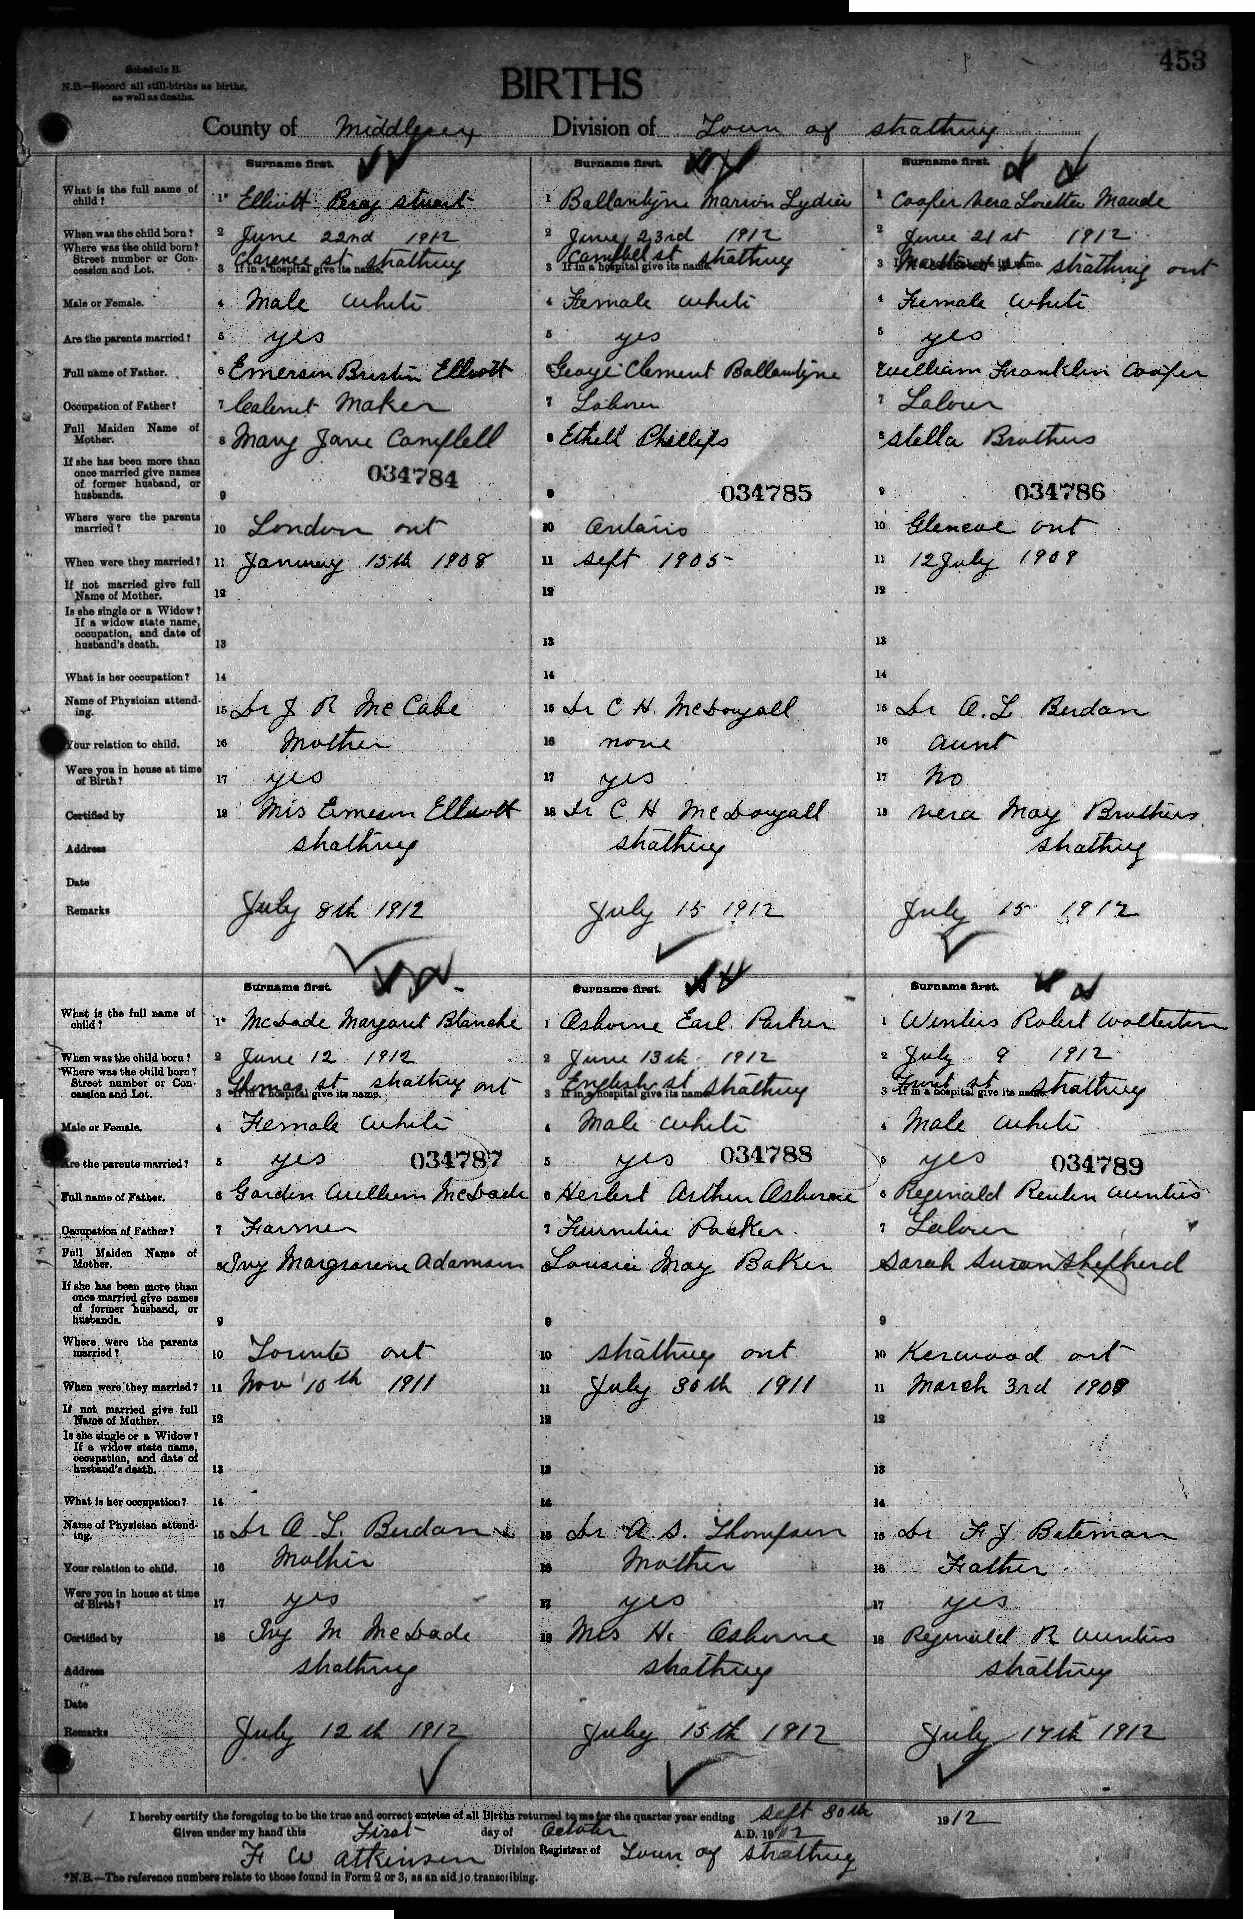 453
Schedule B.
N.B.—Record all still-births as births,
as well as deaths.
BIRTHS
County of Middlesex Division of Town of Strathroy
Surname first. Surname first. Surname first.
What is the full name of child? 1* Elliott Percy Stuart 1 Ballantyne Marion Lydia 1 Cooper Vera Loretta Maude
When was the child born? 2 June 22nd 1912 2 June 23rd 1912 2 June 21st 1912
Where was the child born? Street number or Concession and Lot. 3 If in a hospital give its name. Clarence st Strathroy 3 If in a hospital give its name. Campbell st Strathroy 3 st Strathroy ont
Male or Female. 4 Male White 4 Female White 4 Female White
Are the parents married? 5 yes 5 yes 5 yes
Full name of Father. 6 Emerson Elliott 6 George Clement Ballantyne William Franklin Cooper
Occupation of Father? 7 Cabinet Maker 7 Labour 7 Labour
Full Maiden Name of Mother. 8 Mary Jane Campbell 8 Ethell Phillips 8 Stella Brothers
034784 034785 034786
If she has been more than once married give names of former husband, or husbands. 9 9 9
Where were the parents married? 10 London ont 10 Ontario 10 Glencoe ont
When were they married? 11 January 15th 1908 11 Sept 1905 11 12 July 1909
If not married give full Name of Mother. 12 12 12
Is she single or a Widow? If a widow state name, occupation, and date of husband's death. 13 13 13
What is her occupation? 14 14 14
Name of Physician attending. 15 Dr J R McCabe 15 Dr C H McDougall 15 Dr A. L Berdan
Your relation to child. 16 Mother 16 none 16 aunt
Were you in house at time of Birth? 17 yes 17 yes 17 No
Certified by 18 Mrs Emerson Elliott 18 Dr C H McDougall 18 Vera May Brothers
Address Strathroy Strathroy Strathroy
Date
Remarks July 8th 1912 July 15 1912 July 15 1912
Surname first. Surname first. Surname first.
What is the full name of child? 1* McDade Margaret Blanche 1 Osborne Earl Parker 1 Winters Robert
When was the child born? 2 June 12 1912 2 June 13th 1912 2 July 9 1912
Where was the child born? Street number or Concession and Lot. 3 If in a hospital give its name. Thomas st Strathroy ont 3 If in a hospital give its name. English st Strathroy 3 If in a hospital give its name. Front st Strathroy
Male or Female. 4 Female White 4 Male White 4 Male White
Are the parents married? 5 yes 034787 5 yes 034788 5 yes 034789
Full name of Father. 6 Gordon William McDade 6 Herbert Arthur Osborne 6 Reginald Reuben Winters
Occupation of Father? 7 Farmer 7 Furniture Packer 7 Labour
Full Maiden Name of Mother. 8 Ivy Adamson Louisa May Baker Sarah Susan Shepherd
If she has been more than once married give names of former husband, or husbands. 9 9 9
Where were the parents married? 10 Toronto ont 10 Strathroy ont 10 Kerwood ont
When were they married? 11 Nov 10th 1911 11 July 30th 1911 11 March 3rd 1908
If not married give full Name of Mother. 12 12 12
Is she single or a Widow? If a widow state name, occupation, and date of husband's death. 13 13 13
What is her occupation? 14 14 14
Name of Physician attending. 15 Dr A L. Berdan 15 Dr A S. Thompson 15 Dr F J Bateman
Your relation to child. 16 Mother 16 Mother 16 Father
Were you in house at time of Birth? 17 yes 17 yes 17 yes
Certified by 18 Ivy M McDade 18 Mrs H. Osborne 18 Reginald R Winters
Address Strathroy Strathroy Strathroy
Date
Remarks July 12th 1912 July 15th 1912 July 17th 1912
I hereby certify the foregoing to be the true and correct entries of all Births returned to me for the quarter year ending Sept 30th 1912
Given under my hand this First day of October A.D. 1912
F W Atkinson Division Registrar of Town of Strathroy
*N.B.—The reference numbers relate to those found in Form 2 or 3, as an aid to transcribing.